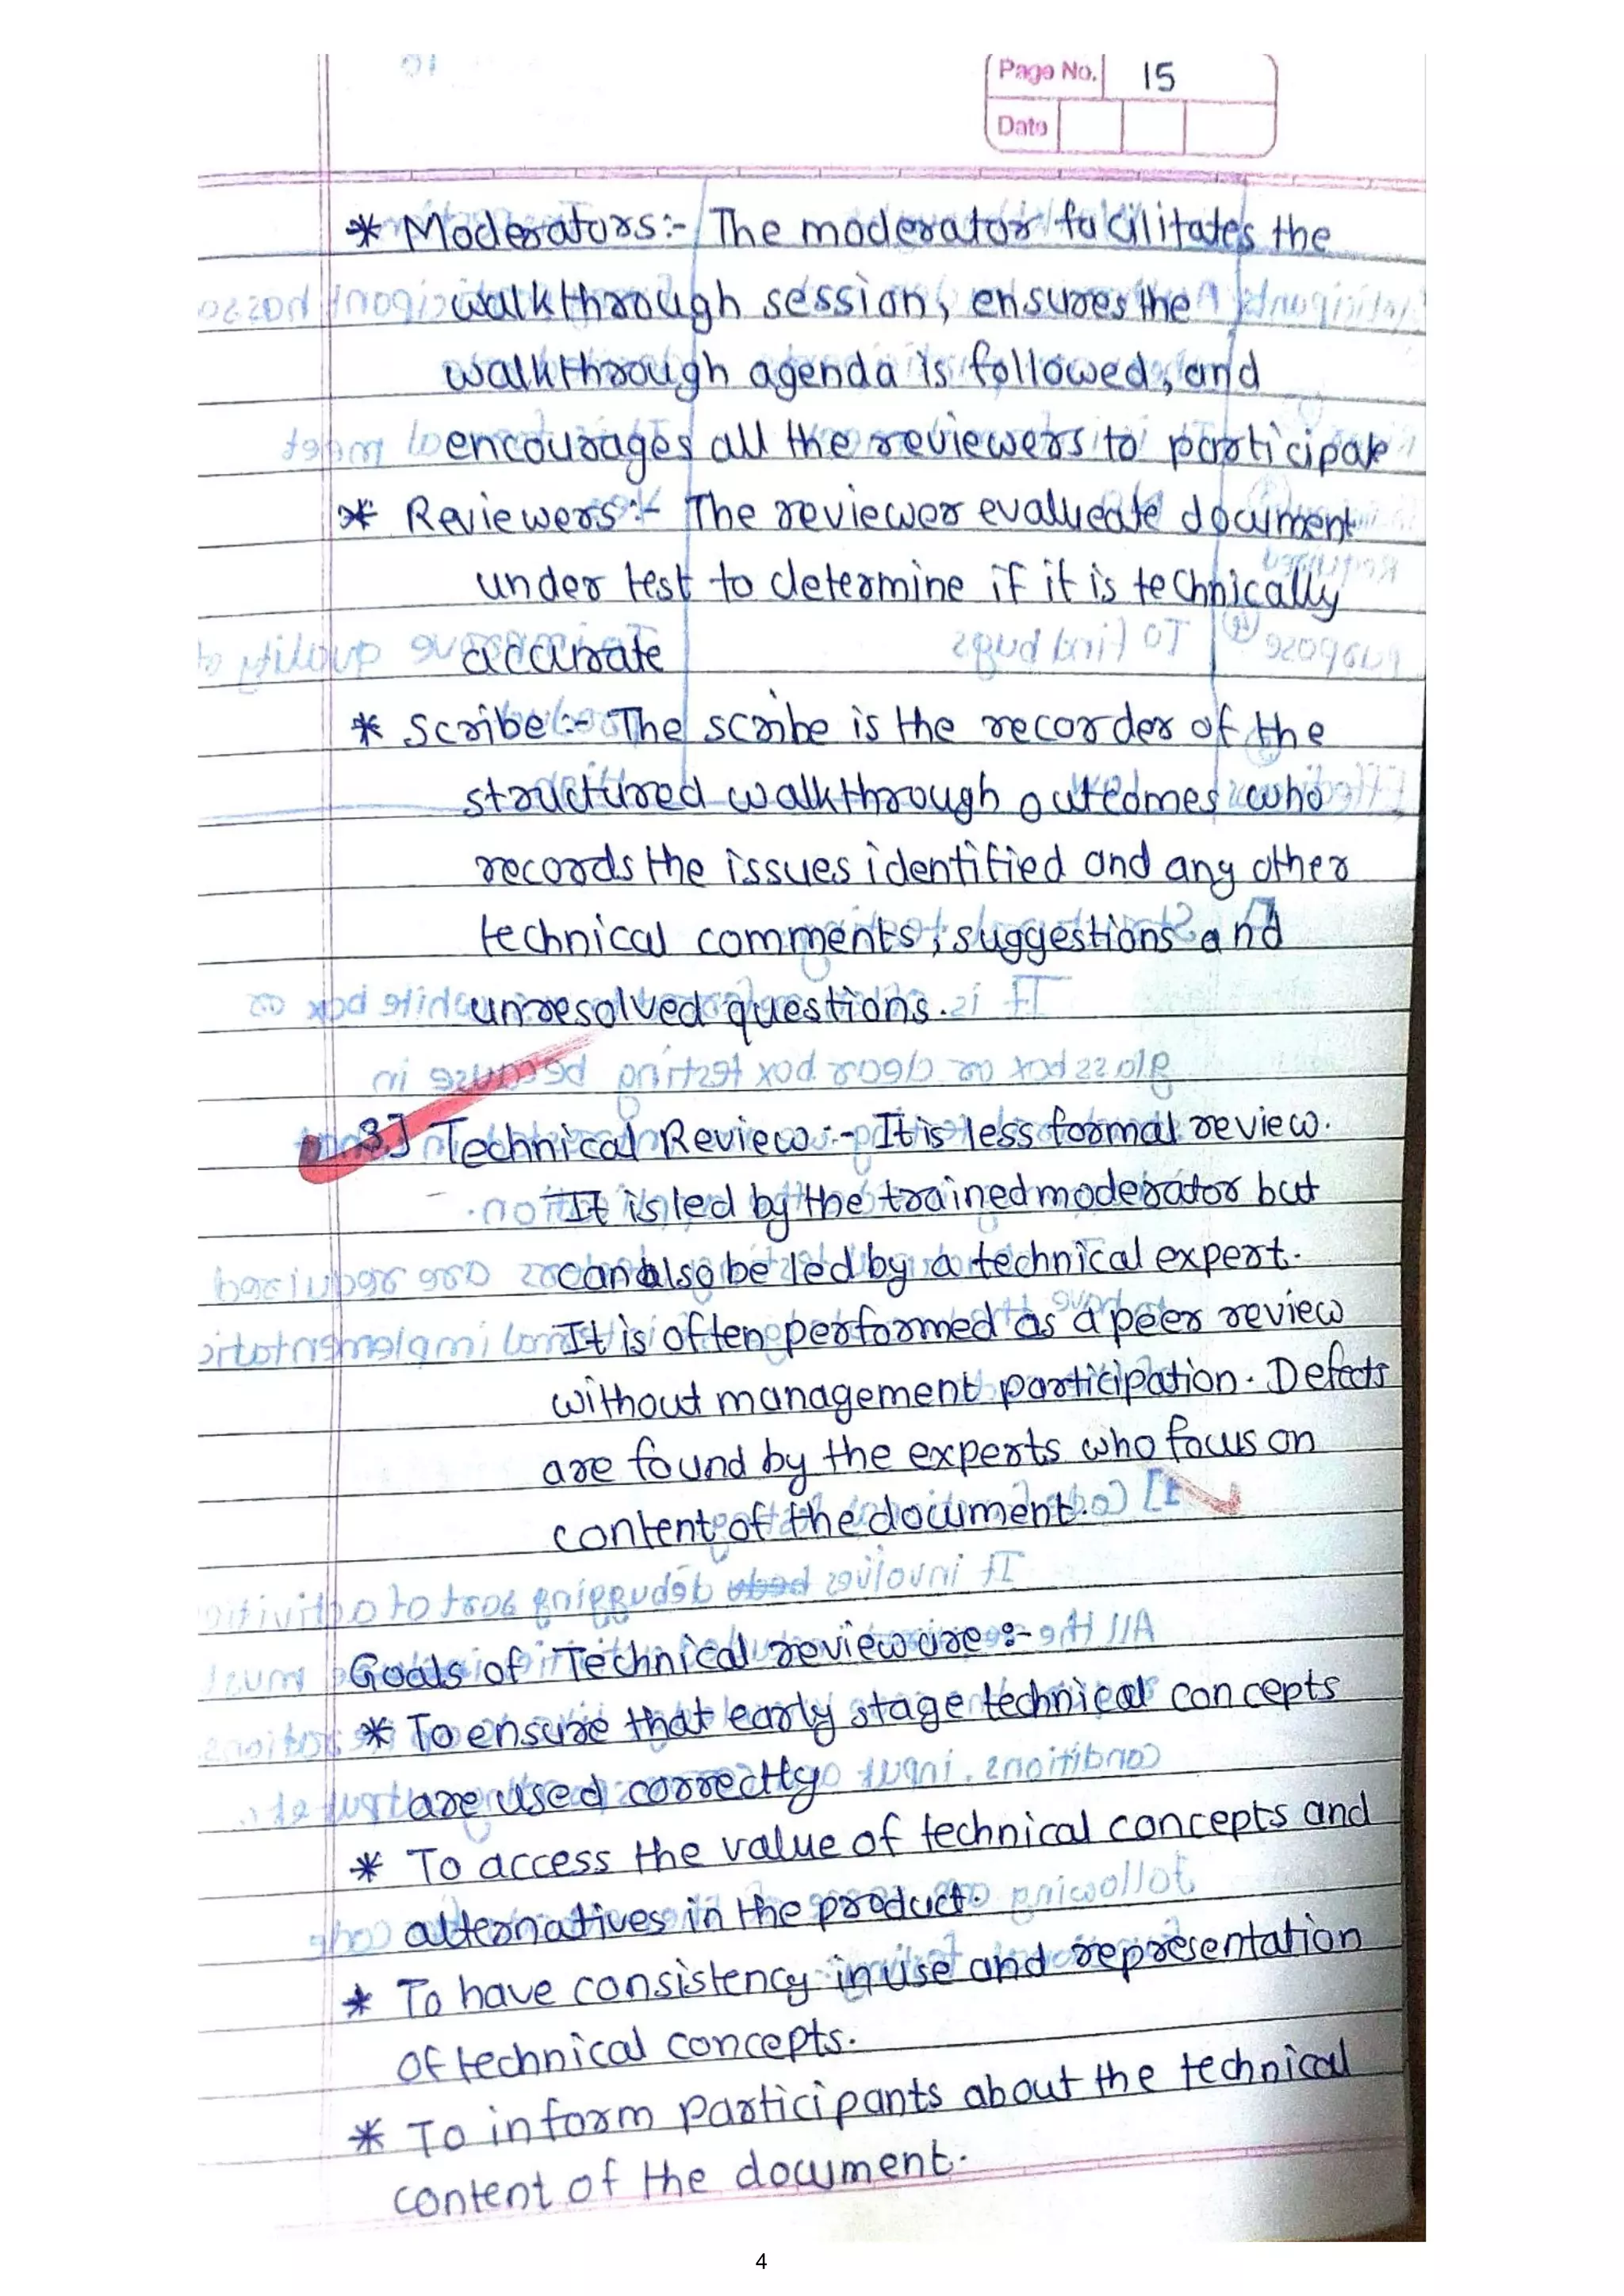 Page No. 15
Date
* Moderators:- The moderator facilitates the
walkthrough session, ensures the
walkthrough agenda is followed, and
encourages all the reviewers to participate
* Reviewers:- The reviewer evalueate document
under test to determine if it is technically
accurate
* Scribe:- The scribe is the recorder of the
structured walkthrough outcomes who
records the issues identified and any other
technical comments, suggestions and
unresolved questions.
3] Technical Review:- It is less formal review.
It is led by the trained moderator but
can also be led by a technical expert.
It is often performed as a peer review
without management participation. Defects
are found by the experts who focus on
content of the document.
Goals of Technical review are :-
* To ensure that early stage technical concepts
are used correctly
* To access the value of technical concepts and
alternatives in the product.
* To have consistency in use and representation
of technical concepts.
* To inform participants about the technical
content of the document.
4